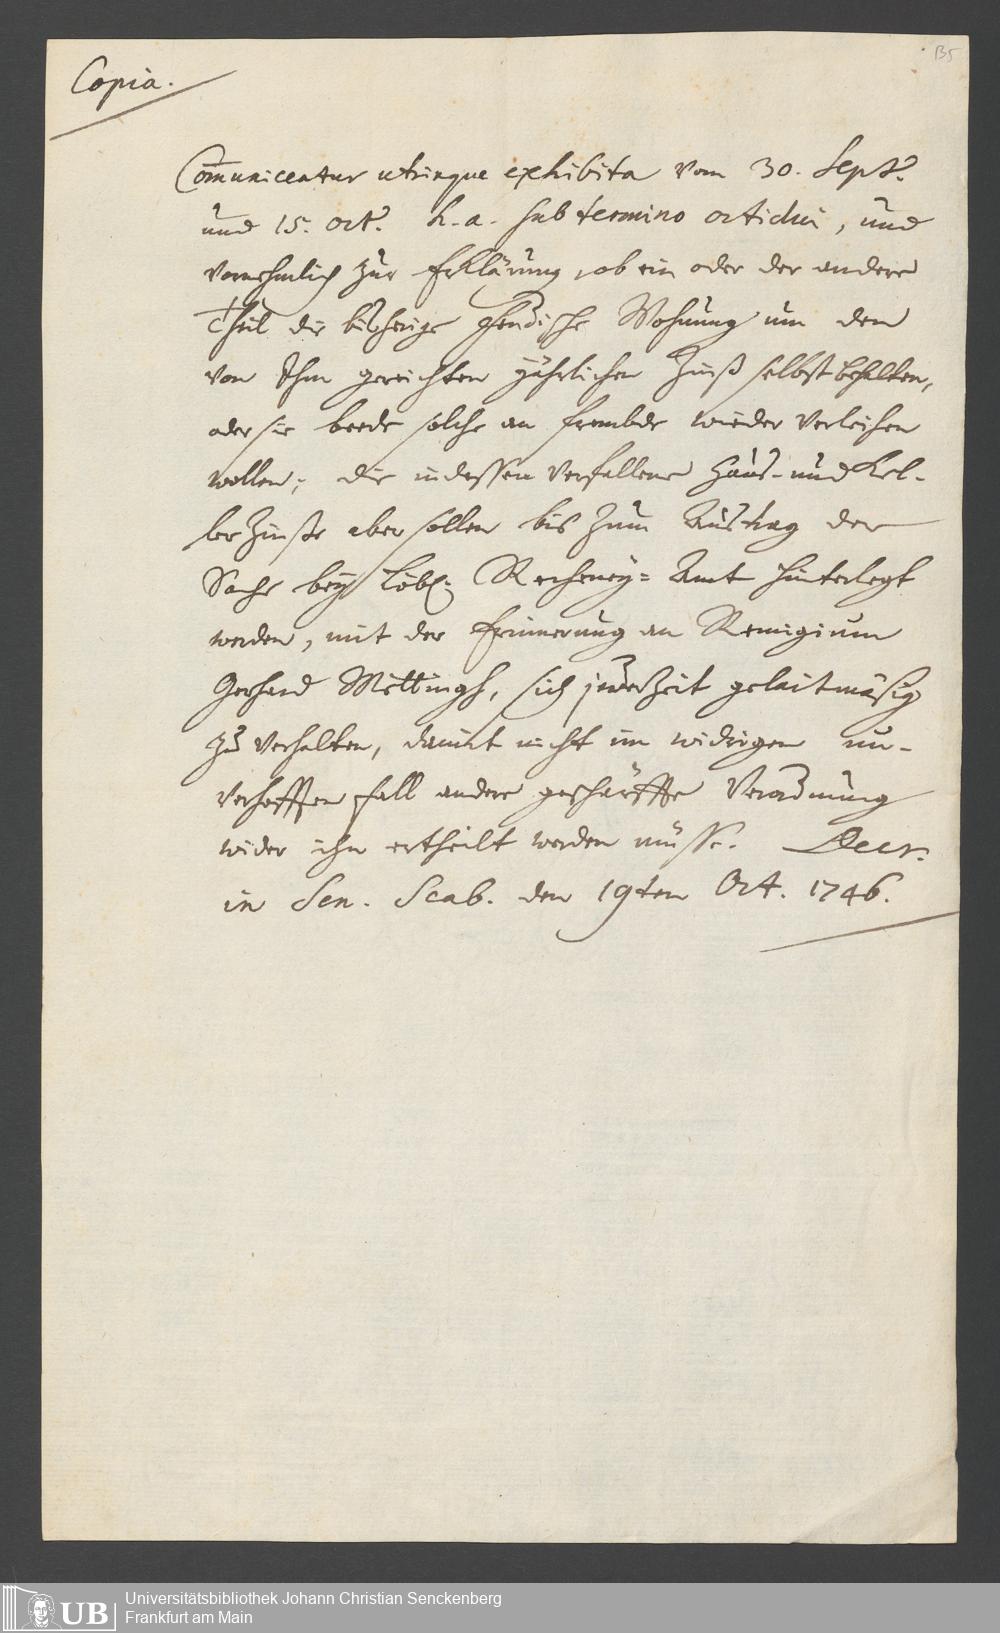 Copia.
B5
Communicentur utrinque exhibita vom 30. Sept.
und 15. Oct. h. a. sub termino octidui, und
vornehmlich zur Erklärung, ob ein oder der andere
Theil die bißherige Wohnung um den
von Ihm gereichten jährlichen Zinß selbst behalten,
oder sie beede solche an frembde wieder verleihen
wollen; die indessen verfallene Hauß- und Kel-
ler Zinße aber sollen bis zum Austrag der
Sache bey Löbl. Recheney-Amt hinterlegt
werden, mit der Erinnerung an Remigium
Gerhard Mettingh, sich jederzeit gelaitmäsig
zu verhalten, damit nicht im widrigen un-
verhofften Fall andere geschärffte Verordnung
wider ihn ertheilt werden müsse. Decr.
in Sen. Scab. den 19ten Oct. 1746.
UB
Universitätsbibliothek Johann Christian Senckenberg
Frankfurt am Main